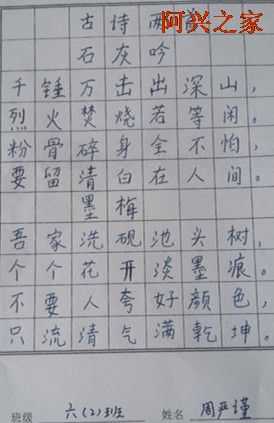 阿兴之家
古诗两首
石灰吟
千锤万击出深山，
烈火焚烧若等闲。
粉骨碎身全不怕，
要留清白在人间。
墨梅
吾家洗砚池头树，
个个花开淡墨痕。
不要人夸好颜色，
只流清气满乾坤。
班级 六(2)班 姓名 周严谨